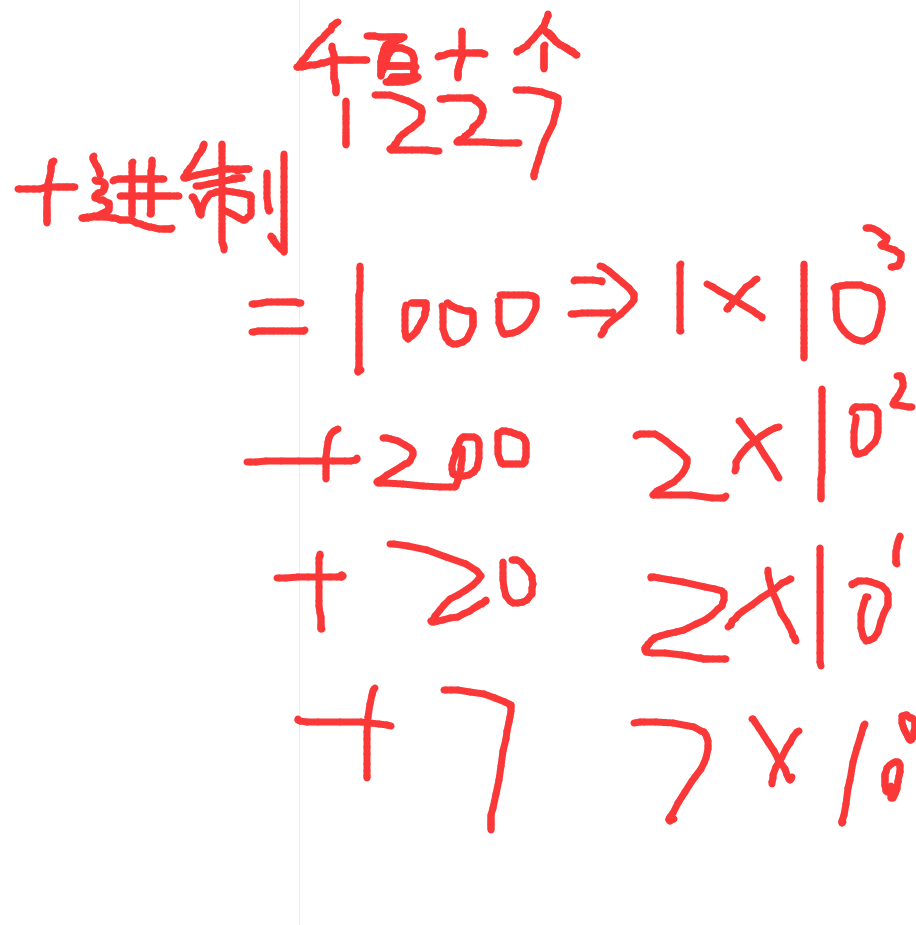 千百十个
1227
十进制
=1000⇒1×10³
+200 2×10²
+20 2×10¹
+7 7×10⁰